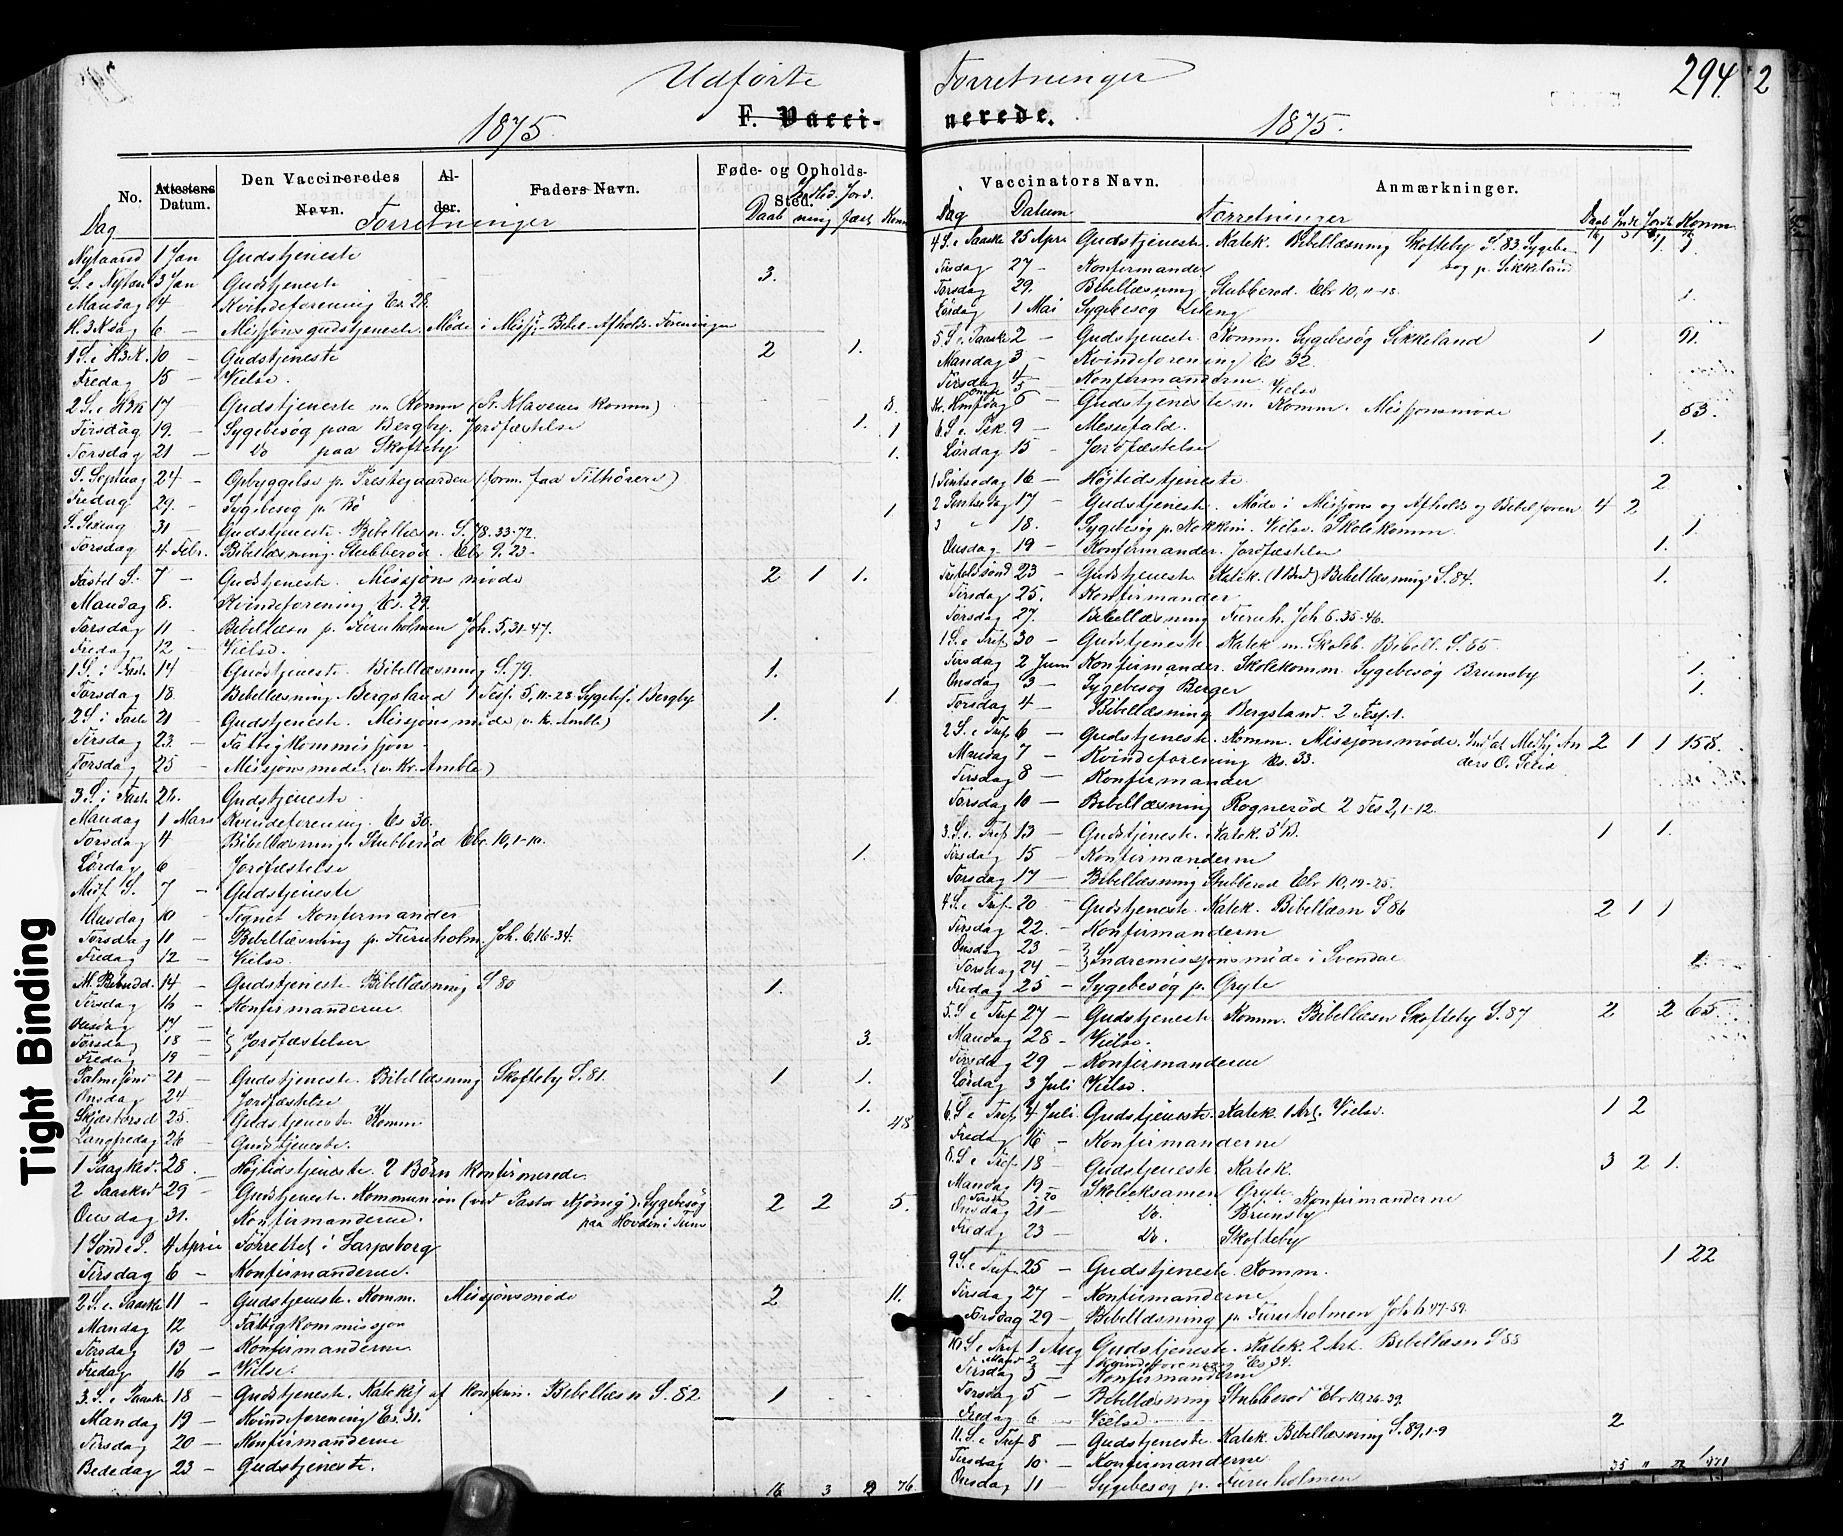 Udførte Forretninger
294.
2
1875.
F. Vacci-
No.
Attestens Datum.
Den Vaccineredes Navn.
Al-der.
Faders Navn.
Føde- og Opholds-Sted.
Dag
Forretninger
Daab
Jord.
Nytaard 1 Jan Gudstjeneste
S. e Nytaar 3 Jan Gudstjeneste 3.
Mandag 4 Kvindeforening Es. 28.
H.3.K.dag 6 – Missionsgudstjeneste Møde i Bibel-Afholds-Foreningen
1 S. e H3K. 10 – Gudstjeneste 2 1.
Fredag 15 – Vielse.
2 S. e H3K 17 Gudstjeneste m Komm (Komm) 8.
Tirsdag 19. – Sygebesøg paa Bergby. Jordfæstelse 1. 1
Torsdag 21 – Do paa Skofteby 1.
S. Septuag 24 – Opbyggelse p. Prestegaarden (form. faa Tilhørere)
Fredag 29. – Sygebesøg p. Bö 1
S. Sexag 31 – Gudstjeneste. Bibellæsn. S. 78. 33-72.
Torsdag 4 Febr. Bibellæsning. Stubberød. Ebr 9. 23-
Fastel S. 7 – Gudstjeneste. Missionsmøde 2 1 1.
Mandag 8. Kvindeforening Es. 29.
Torsdag 11 – Bibellæsn p. Furuholmen Joh. 5, 31-47.
Fredag 12 – Vielse.
1 S. i Fast. 14 Gudstjeneste. Bibellæsning S. 79. 1.
Torsdag 18. Bibellæsning. Bergsland 1 Tess. 5, 11-28 Sygebes. Bergby 1
2 S. i Faste 21 – Gudstjeneste. Missionsmøde (v. Kr. Amble) 1.
Tirsdag 23. – Fattigkommission
Torsdag 25 – Missionsmøde (v. Kr. Amble)
3 S. i Faste 28. Gudstjeneste
Mandag 1 Mars Kvindeforening. Es 30.
Torsdag 4 – Bibellæsning Stubberød Ebr. 10, 1-10.
Lørdag 6 Jordfæstelse 1.
Midf. S. 7 – Gudstjeneste
Onsdag 10 – Tegnet Konfirmander
Torsdag 11 – Bibellæsning p. Furuholm. Joh. 6, 16-34.
Fredag 12 – Vielse.
M. Bebud. 14 – Gudstjeneste Bibellæsning S 80 1.
Tirsdag 16 – Konfirmanderne.
Onsdag 17 –
Torsdag 18 – } Jordfæstelser 3.
Fredag 19 –
Palmesønd 21 – Gudstjeneste. Bibellæsning Skofteby S. 81. 1 1.
Onsdag 24 – Jordfæstelse 1.
Skjærtorsd 25. Gudstjeneste Komm 48.
Langfredag 26 – Gudstjeneste.
1 Paasked. 28. Højtidstjeneste. 2 Børn Konfirmerede
2 Paaskd 29 – Gudstjeneste. Kommunion (ved Pastor) Sygebesøg 2 2 5.
Onsdag 31. Konfirmanderne. paa Hovden i Tune
1 Sønd e P. 4 April Forrettet i Sarpsborg
Tirsdag 6 – Konfirmanderne.
2 S. e. Paaske 11 – Gudstjeneste. Komm. Missionsmøde 2 11.
Mandag 12 Fattigkommission
Torsdag 13 – Konfirmanderne
Fredag 16 – Vielse.
3 S. e Paaske 18 – Gudstjeneste. Katekis af Konfirm. Bibellæsn S. 82. 1
Mandag 19 – Kvindeforening Es. 31.
Tirsdag 20 – Konfirmanderne
Bededag 23 – Gudstjeneste.
16 3 9 76.
nerede.
1875.
Vaccinators Navn.
Anmærkninger.
Dag Datum Forretninger Daab Jordf Komm
4 S. e Paaske 25 Apri Gudstjeneste. Katek. Bibellæsning Skofteby S. 83. Sygebe
Tirsdag 27 – Konfirmander søg p. Sikkeland
Torsdag 29. Bibellæsning Stubberød. Ebr 10, 11-18.
Lørdag 1 Mai Sygebesøg 1.
5 S. e. Paaske 2 – Gudstjeneste Komm. Sygebesøg Sikkeland 1 91.
Mandag 3 – Kvindeforening Es 32.
Tirsdag 4 – Konfirmanderne
Kr. Hmfdag 6 – Gudstjeneste m. Komm. Missionsmøde 53.
Vielse
6 S. e. Psk. 9 – Messefald.
Lørdag 15 – Jordfæstelse 1.
1 Pintsedag 16 – Højtidstjeneste 2
2 Pintsedag 17 – Gudstjeneste. Møde i Missions og Afholds og Bibelforen 4 2
3 " 18. Sygebesøg p. Vielse. Skolekomm. 1.
Onsdag 19 – Konfirmander. Jordfæstelse 1.
Trefoldsønd 23 – Gudstjeneste Katek. Bibellæsning S. 84. 1.
Tirsdag 25. Konfirmander
Torsdag 27. Bibellæsning Furuh. Joh 6. 35-46.
1 S. e Tref 30 – Gudstjeneste Katek m. Skoleb. Bibell. S. 85.
Tirsdag 2 Juni Konfirmander. Skolekomm. Sygebesøg Brunsby 1.
Onsdag 3 – Sygebesøg Berger 1.
Torsdag 4 – Bibellæsning Bergsland. 2 Tess. 1.
2 S. e Tref 6 – Gudstjeneste. Komm. Missionsmøde. 2 1 1 158.
Mandag 7 – Kvindeforening Es. 33.
Tirsdag 8 – Konfirmander
Torsdag 10 – Bibellæsning Rognerød 2 Tes 2, 1-12.
3. S. e. Tref 13 – Gudstjeneste. Katek. 5 B. 1 1.
Tirsdag 15 – Konfirmanderne
Torsdag 17 – Bibellæsning Stubberød Ebr 10, 19-25.
4 S. e Tref 20 – Gudstjeneste. Katek. Bibellæsn S 86 2 1 1
Tirsdag 22. – Konfirmanderne
Onsdag 23 –
Torsdag 24 – } Indremissionsmøde i Svendal 1.
Fredag 25 – Sygebesøg p. Gryte
5. S e Tref 27 – Gudstjeneste Komm. Bibellæsn Skofteby S. 87 2 2 65
Mandag 28 – Vielse.
Tirsdag 29 – Konfirmanderne
Lørdag 3 Juli Vielse.
6. S e Tref 4 Juli. Gudstjeneste. Katek. 1 Art. Vielse. 1 2
Fredag 16 – Konfirmanderne
8. S e Tref 18 – Gudstjeneste. Katek. 3 2 1.
Mandag 19 – Skoleeksamen Gryte
Tirsd 20 Konfirmanderne
Onsdag 21 – Do. Brunsby
Fredag 23 – Do. Skofteby
9 S. e Tref 25 – Gudstjeneste. Komm. 1 22
Tirsdag 27 – Konfirmanderne
Torsdag 29 – Bibellæsning p. Furuholmen Joh 6 47-59.
10. S. e Tref 1 Aug Gudstjeneste. Katek. 2 Art. Bibellæsn S 88
Mand 2 – Kvindeforening Es 34.
Tirsdag 3 – Konfirmanderne
Torsdag 5 – Bibellæsning Stubberød Ebr 10, 26-39.
Fredag 6 – Vielse.
11. S. e Tref 8 – Gudstjeneste. Katek. Bibellæsning S. 89, 1-9 2
Tirsdag 10 – Konfirmanderne
Onsdag 11 – Sygebesøg p. Furuholmen
Tight Binding